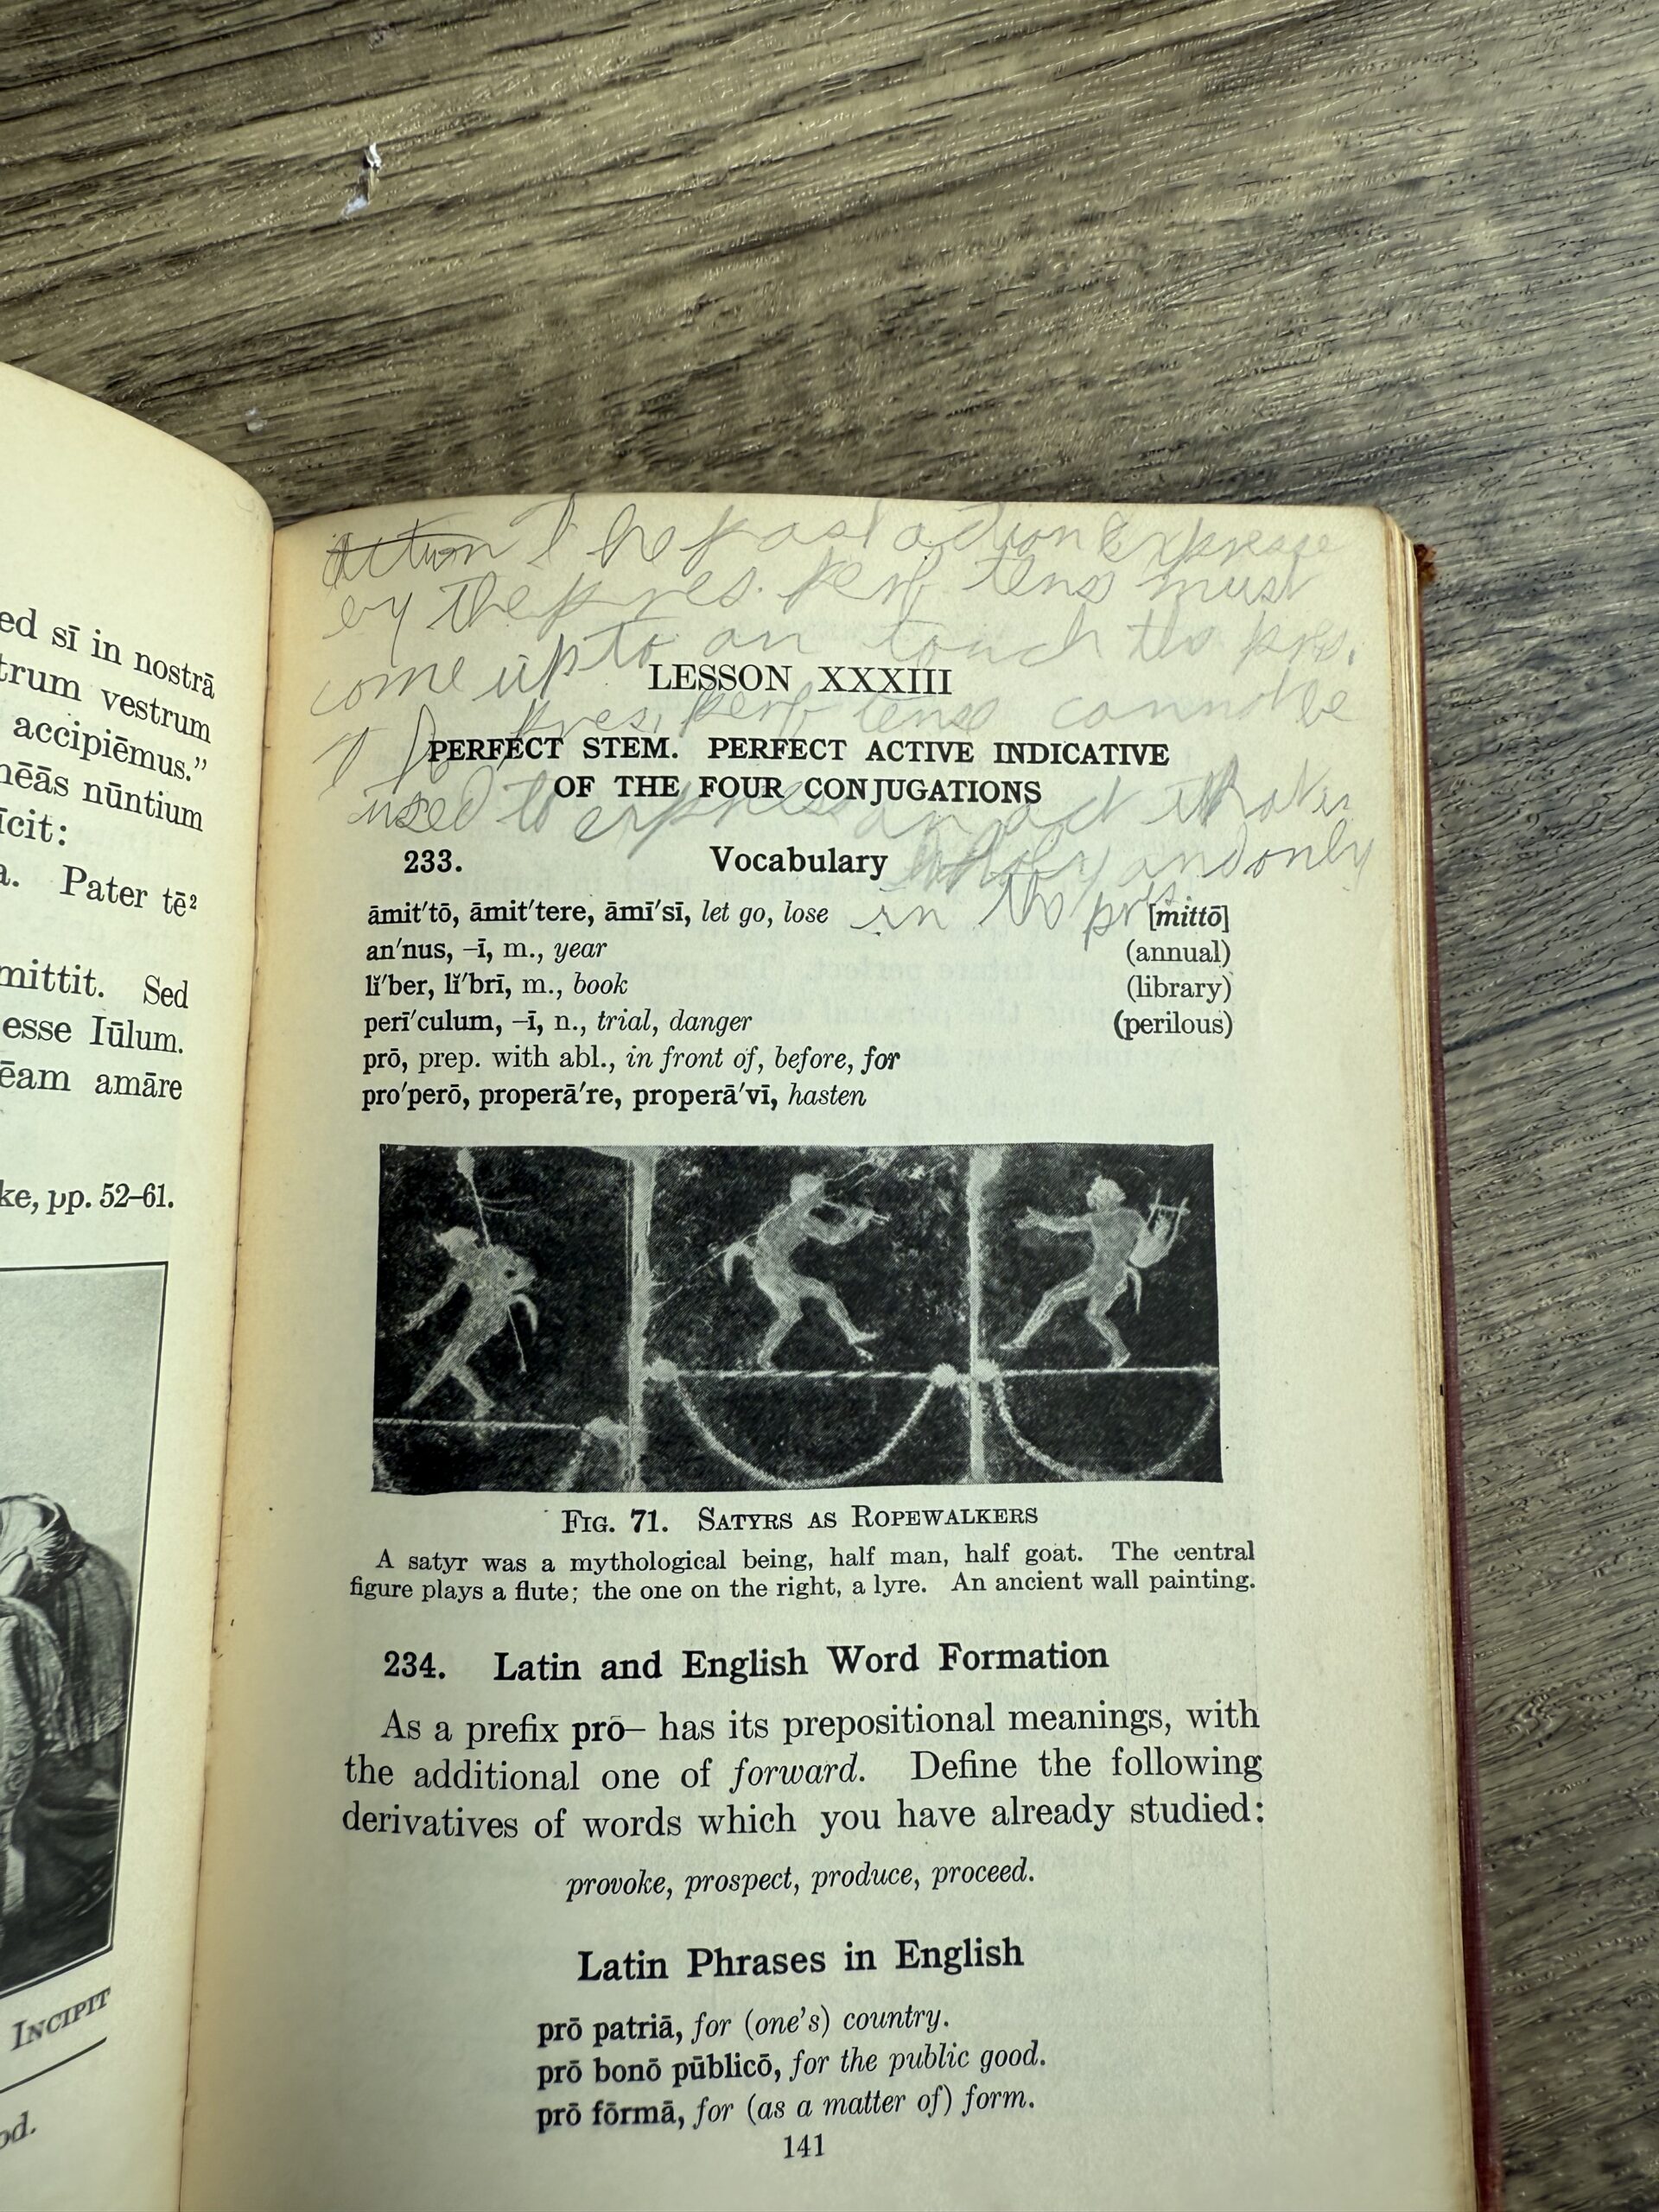 ed sī in nostrā
trum vestrum
accipiēmus.”
nēās nūntium
īcit:
a. Pater tē²
mittit. Sed
esse Iūlum.
ēam amāre
ke, pp. 52–61.
INCIPIT
od.
action The past action Express
by the pres. perf tens must
come up to an touch the pres.
The pres. perf tense cannot be
used to express an act that is
wholly and only
in the pres.
LESSON XXXIII
PERFECT STEM. PERFECT ACTIVE INDICATIVE
OF THE FOUR CONJUGATIONS
233. Vocabulary
āmit′tō, āmit′tere, āmī′sī, let go, lose [mittō]
an′nus, –ī, m., year (annual)
lĭ′ber, lĭ′brī, m., book (library)
perī′culum, –ī, n., trial, danger (perilous)
prō, prep. with abl., in front of, before, for
pro′perō, properā′re, properā′vī, hasten
FIG. 71. SATYRS AS ROPEWALKERS
A satyr was a mythological being, half man, half goat. The central
figure plays a flute; the one on the right, a lyre. An ancient wall painting.
234. Latin and English Word Formation
As a prefix prō– has its prepositional meanings, with
the additional one of forward. Define the following
derivatives of words which you have already studied:
provoke, prospect, produce, proceed.
Latin Phrases in English
prō patriā, for (one’s) country.
prō bonō pūblicō, for the public good.
prō fōrmā, for (as a matter of) form.
141